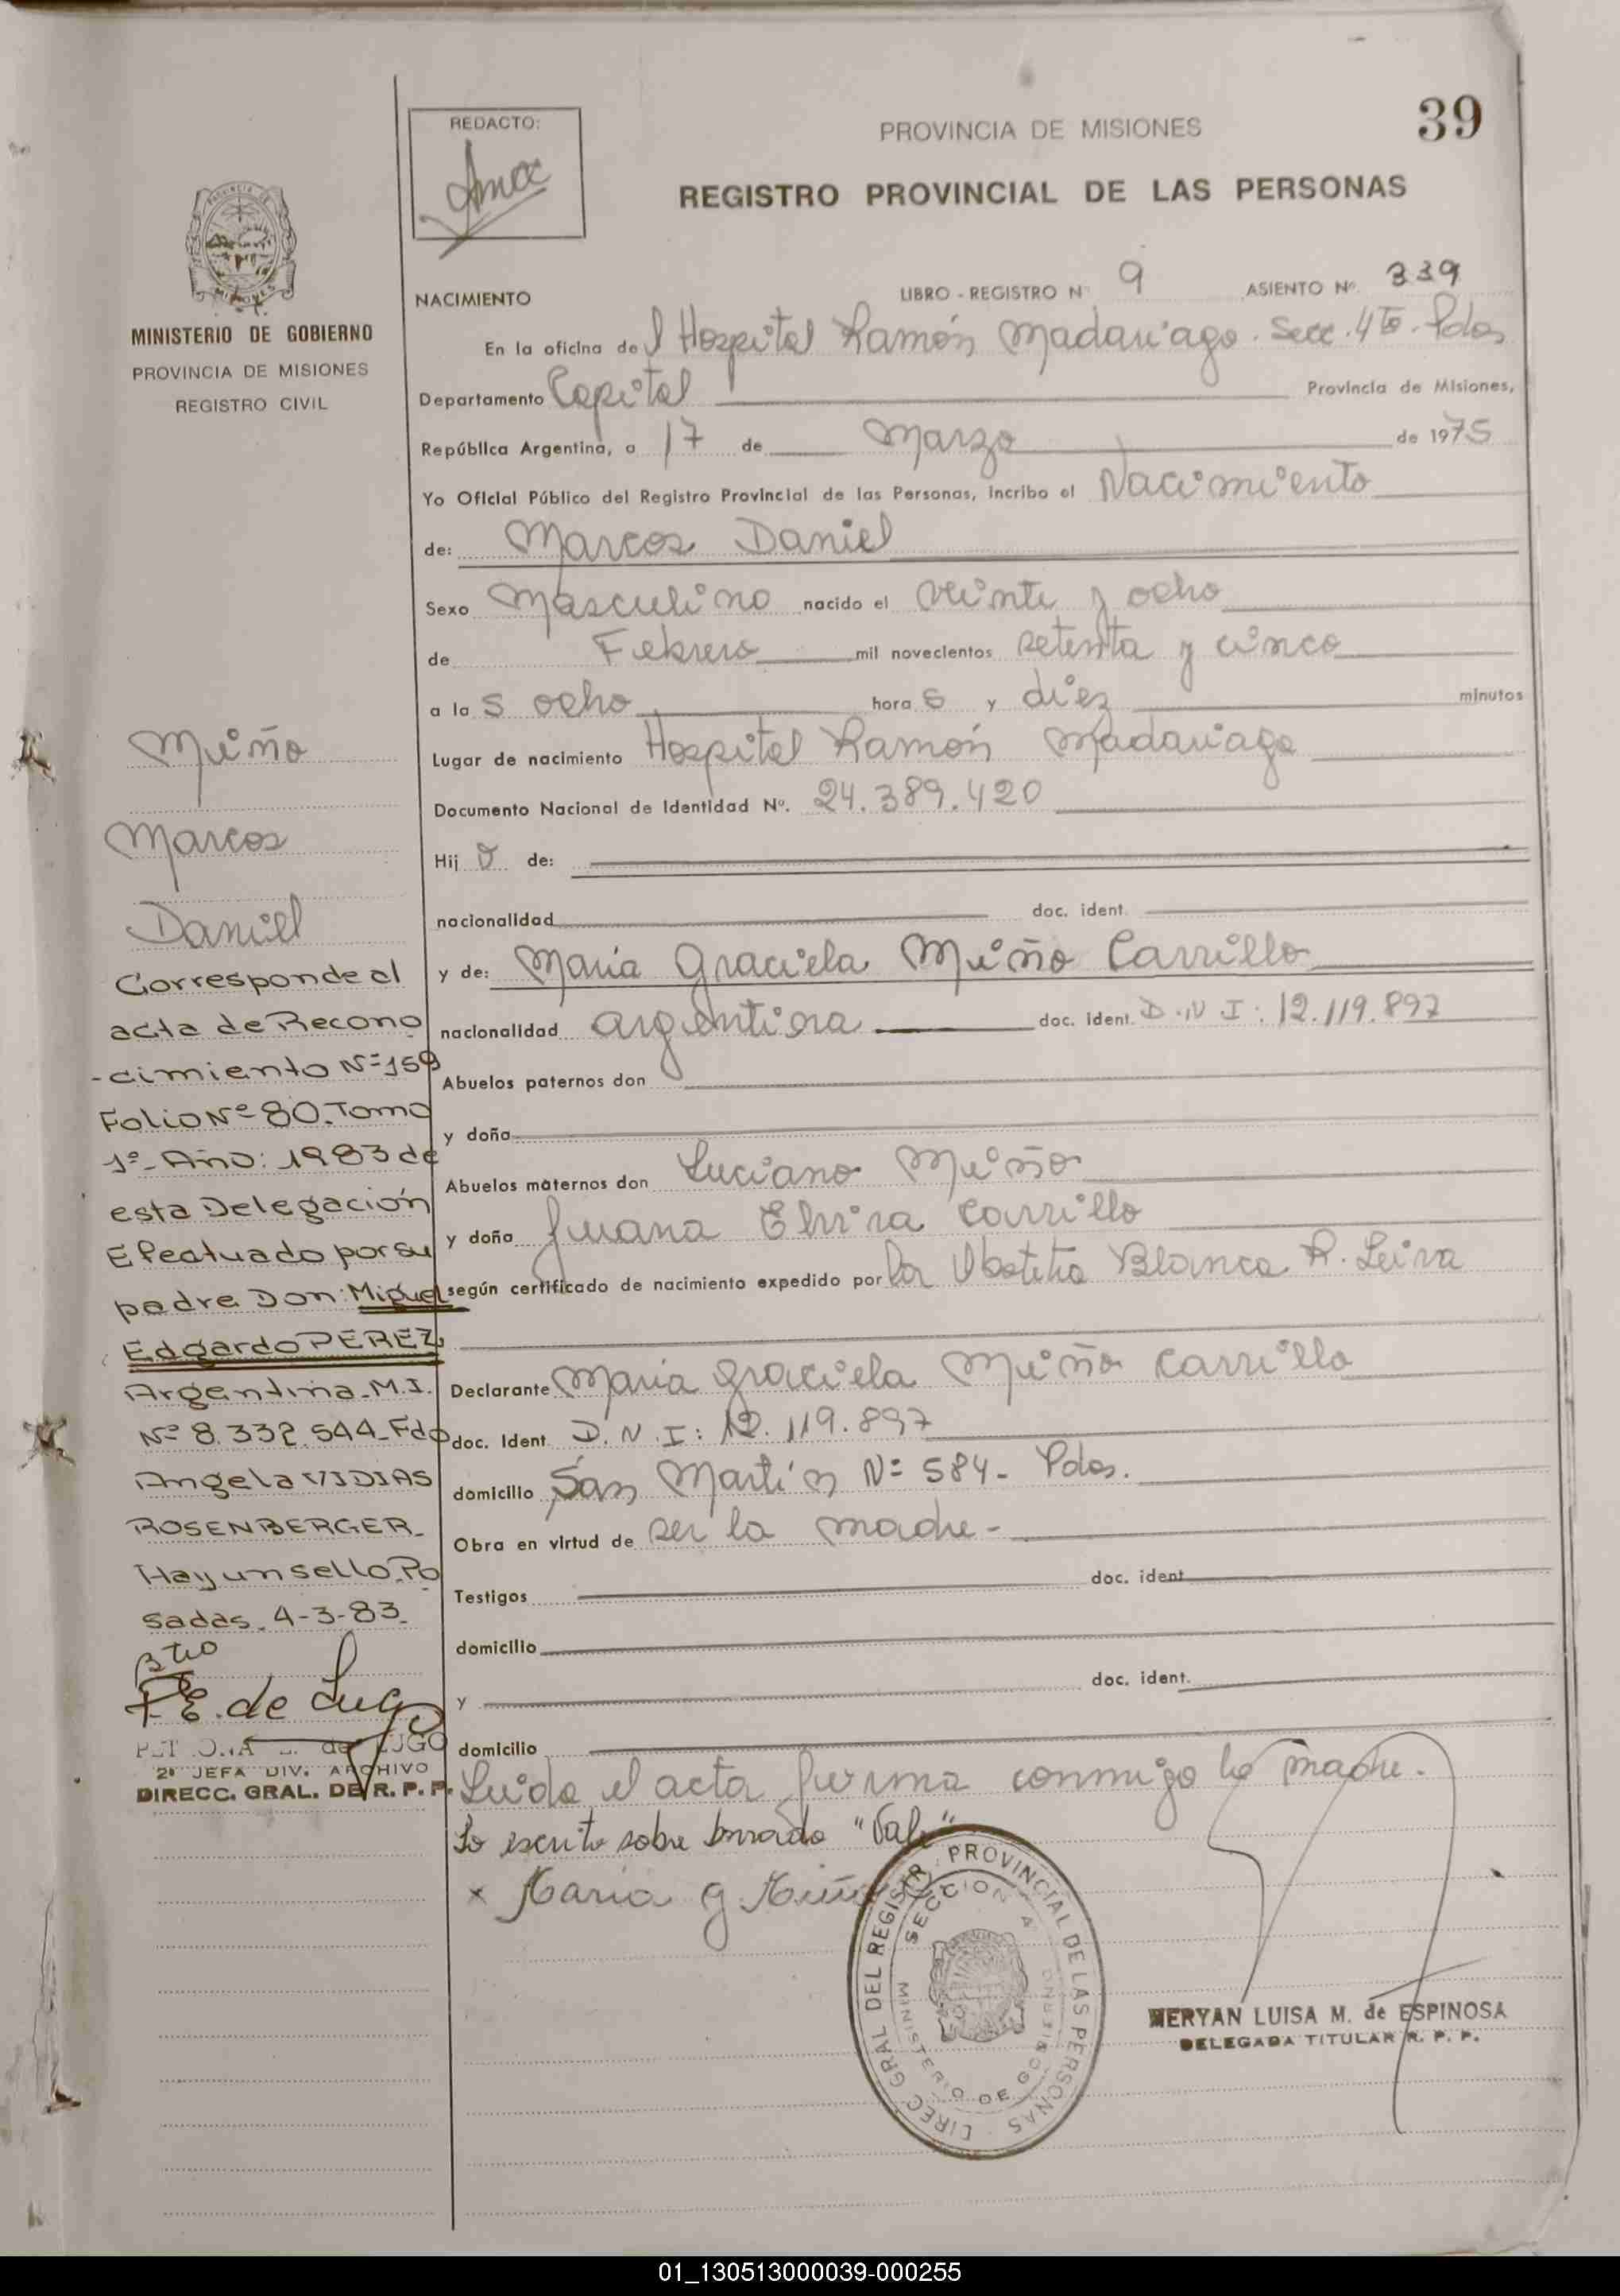 39
REDACTO:
PROVINCIA DE MISIONES
REGISTRO PROVINCIAL DE LAS PERSONAS
MINISTERIO DE GOBIERNO
PROVINCIA DE MISIONES
REGISTRO CIVIL
NACIMIENTO LIBRO - REGISTRO N° 9 ASIENTO Nº. 339
En la oficina del Hospital Ramón Madariaga. Secc. 4ta. Pdas
Departamento Capital Provincia de Misiones,
República Argentina, a 17 de Marzo de 1975
Yo Oficial Público del Registro Provincial de las Personas, incribo el Nacimiento
de: Marcos Daniel
Sexo Masculino nacido el veinte y ocho
de Febrero mil novecientos setenta y cinco
a las ocho horas y diez minutos
Lugar de nacimiento Hospital Ramón Madariaga
Documento Nacional de Identidad Nº. 24.389.420
Hijo de:
nacionalidad doc. ident.
y de: María Graciela Miño Carrillo
nacionalidad argentina doc. ident. D.N I: 12.119.897
Abuelos paternos don
y doña
Abuelos maternos don Luciano Miño
y doña Juana Elvira Carrillo
según certificado de nacimiento expedido por la Obstetra Blanca R. Leiva
Declarante María Graciela Miño Carrillo
doc. Ident. D.N.I: 12.119.897
domicilio San Martín N= 584- Pdas.
Obra en virtud de ser la madre-
Testigos doc. ident
domicilio
y doc. ident.
domicilio
Leida el acta firma conmigo la madre.
Lo escrito sobre borrado "Vale"
x Maria g Miño
Miño
Marcos
Daniel
Corresponde al
acta de Recono
-cimiento Nº=159
Folio Nº 80. Tomo
1º- Año: 1983 de
esta Delegación
Efectuado por su
padre Don: Miguel
Edgardo PEREZ,
Argentina. M.I.
Nº 8.332.544_Fdo
Angela VIDIAS
ROSENBERGER_
Hay un sello. Po
sadas. 4-3-83.
P.E. de Lugo
de LUGO
2ª JEFA DIV. ARCHIVO
DIRECC. GRAL. DE R. P. P.
DIREC. GRAL DEL REGISTR. PROVINCIAL DE LAS PERSONAS
SECCION 4
MINISTERIO DE GOBIERNO
MERYAN LUISA M. de ESPINOSA
DELEGADA TITULAR R. P. P.
01_130513000039-000255